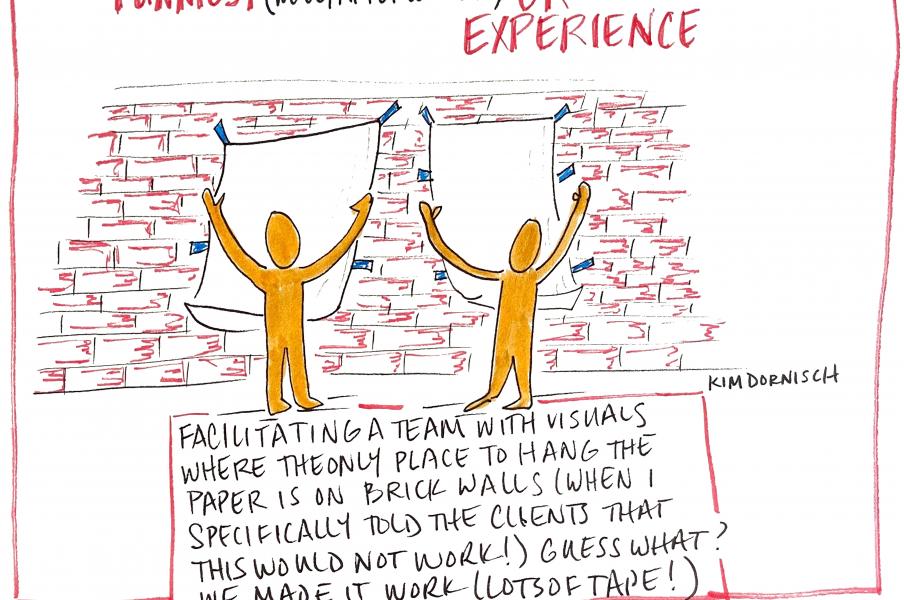 FUNNIEST
EXPERIENCE
KIM DORNISCH
FACILITATING A TEAM WITH VISUALS
WHERE THE ONLY PLACE TO HANG THE
PAPER IS ON BRICK WALLS (WHEN I
SPECIFICALLY TOLD THE CLIENTS THAT
THIS WOULD NOT WORK!) GUESS WHAT?
WE MADE IT WORK (LOTS OF TAPE!)